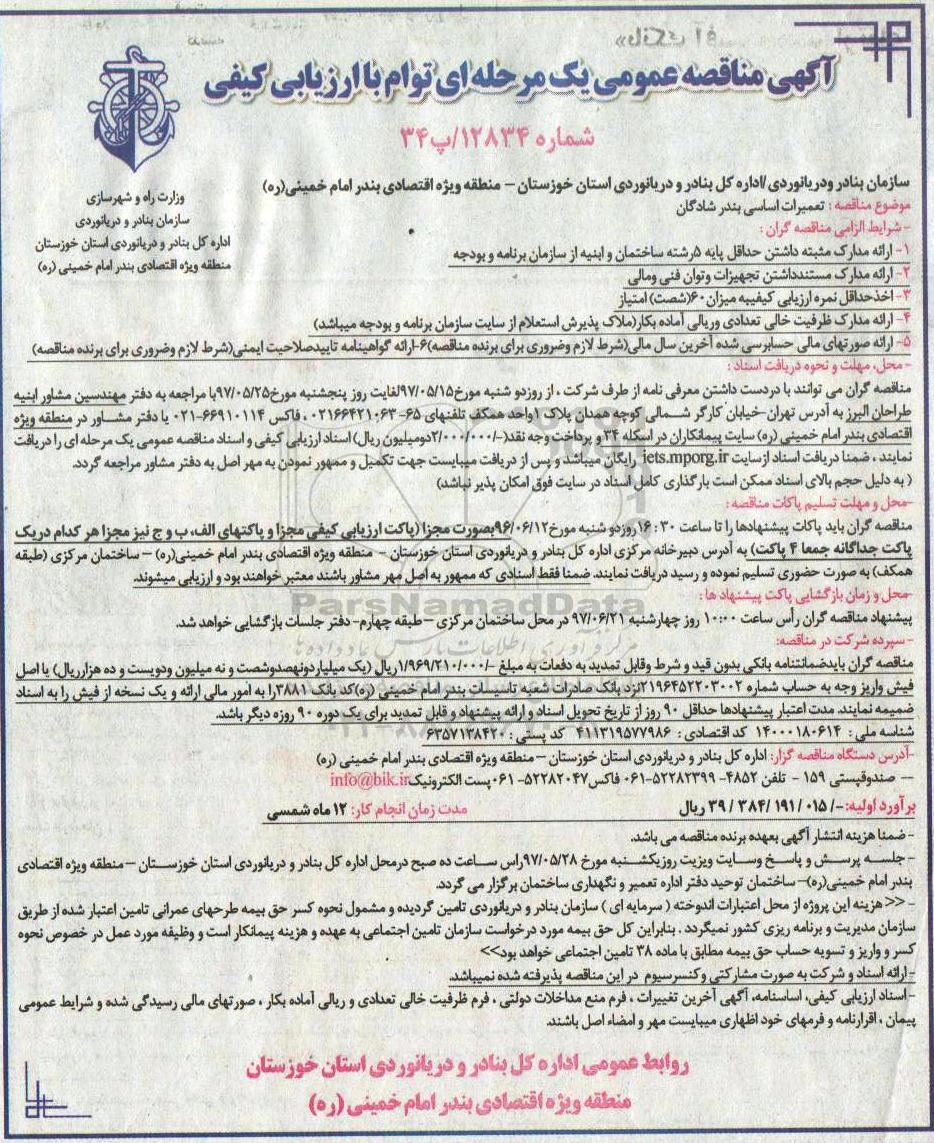 آگهی مناقصه عمومی یک مرحله ای توام با ارزیابی کیفی
شماره ۱۲۸۳۴/پ۳۴
وزارت راه و شهرسازی
سازمان بنادر و دریانوردی
اداره کل بنادر و دریانوردی استان خوزستان
منطقه ویژه اقتصادی بندر امام خمینی (ره)
سازمان بنادر ودریانوردی /اداره کل بنادر و دریانوردی استان خوزستان – منطقه ویژه اقتصادی بندر امام خمینی(ره)
موضوع مناقصه : تعمیرات اساسی بندر شادگان
- شرایط الزامی مناقصه گران :
۱- ارائه مدارک مثبته داشتن حداقل پایه ۵رشته ساختمان و ابنیه از سازمان برنامه و بودجه
۲- ارائه مدارک مستندداشتن تجهیزات وتوان فنی ومالی
۳- اخذحداقل نمره ارزیابی کیفیبه میزان۶۰(شصت) امتیاز
۴- ارائه مدارک ظرفیت خالی تعدادی وریالی آماده بکار(ملاک پذیرش استعلام از سایت سازمان برنامه و بودجه میباشد)
۵- ارائه صورتهای مالی حسابرسی شده آخرین سال مالی(شرط لازم وضروری برای برنده مناقصه)۶-ارائه گواهینامه تاییدصلاحیت ایمنی(شرط لازم وضروری برای برنده مناقصه)
- محل، مهلت و نحوه دریافت اسناد :
مناقصه گران می توانند با دردست داشتن معرفی نامه از طرف شرکت ، از روزدو شنبه مورخ۹۷/۰۵/۱۵لغایت روز پنجشنبه مورخ۹۷/۰۵/۲۵با مراجعه به دفتر مهندسین مشاور ابنیه
طراحان البرز به آدرس تهران-خیابان کارگر شمالی کوچه همدان پلاک ۱واحد همکف تلفنهای ۶۵-۰۲۱۶۶۴۲۱۰۶۳ فاکس ۶۶۹۱۰۱۱۴-۰۲۱ یا دفتر مشاور در منطقه ویژه
اقتصادی بندر امام خمینی (ره) سایت پیمانکاران در اسکله ۳۴ و پرداخت وجه نقد(-/۲/۰۰۰/۰۰۰دومیلیون ریال) اسناد ارزیابی کیفی و اسناد مناقصه عمومی یک مرحله ای را دریافت
نمایند ، ضمنا دریافت اسناد ازسایت iets.mporg.ir رایگان میباشد و پس از دریافت میبایست جهت تکمیل و ممهور نمودن به مهر اصل به دفتر مشاور مراجعه گردد.
( به دلیل حجم بالای اسناد ممکن است بارگذاری کامل اسناد در سایت فوق امکان پذیر نباشد)
-محل و مهلت تسلیم پاکات مناقصه :
مناقصه گران باید پاکات پیشنهادها را تا ساعت ۳۰ : ۱۶ روزدو شنبه مورخ۹۶/۰۶/۱۲بصورت مجزا (پاکت ارزیابی کیفی مجزا و پاکتهای الف، ب و ج نیز مجزا هر کدام دریک
پاکت جداگانه جمعا ۴ پاکت) به آدرس دبیرخانه مرکزی اداره کل بنادر و دریانوردی استان خوزستان - منطقه ویژه اقتصادی بندر امام خمینی(ره) – ساختمان مرکزی (طبقه
همکف) به صورت حضوری تسلیم نموده و رسید دریافت نمایند. ضمنا فقط اسنادی که ممهور به اصل مهر مشاور باشند معتبر خواهند بود و ارزیابی میشوند.
-محل و زمان بازگشایی پاکت پیشنهاد ها :
پیشنهاد مناقصه گران رأس ساعت ۱۰:۰۰ روز چهارشنبه ۹۷/۰۶/۲۱ در محل ساختمان مرکزی – طبقه چهارم- دفتر جلسات بازگشایی خواهد شد.
- سپرده شرکت در مناقصه:
مناقصه گران بایدضمانتنامه بانکی بدون قید و شرط وقابل تمدید به دفعات به مبلغ -/۱/۹۶۹/۲۱۰/۰۰۰ریال (یک میلیاردونهصدوشصت و نه میلیون ودویست و ده هزارریال) یا اصل
فیش واریز وجه به حساب شماره ۲۱۹۶۴۵۲۲۰۳۰۰۲نزد بانک صادرات شعبه تاسیسات بندر امام خمینی (ره)کد بانک ۳۸۸۱را به امور مالی ارائه و یک نسخه از فیش را به اسناد
ضمیمه نمایند. مدت اعتبار پیشنهادها حداقل ۹۰ روز از تاریخ تحویل اسناد و ارائه پیشنهاد و قابل تمدید برای یک دوره ۹۰ روزه دیگر باشد.
شناسه ملی : ۱۴۰۰۰۱۸۰۶۱۴ کد اقتصادی : ۴۱۱۳۱۹۵۷۷۹۸۶ کد پستی : ۶۳۵۷۱۳۸۴۲۰
-آدرس دستگاه مناقصه گزار: اداره کل بنادر و دریانوردی استان خوزستان – منطقه ویژه اقتصادی بندر امام خمینی (ره)
– صندوقپستی ۱۵۹ - تلفن ۴۸۵۲- ۵۲۲۸۲۳۹۹-۰۶۱ فاکس۵۲۲۸۲۰۴۷-۰۶۱پست الکترونیکinfo@bik.ir
برآورد اولیه:-/ ۰۱۵ /۱۹۱ /۳۸۴ / ۳۹ ریال مدت زمان انجام کار: ۱۲ ماه شمسی
- ضمنا هزینه انتشار آگهی بعهده برنده مناقصه می باشد.
- جلسه پرسش و پاسخ وسایت ویزیت روزیکشنبه مورخ ۹۷/۰۵/۲۸راس ساعت ده صبح درمحل اداره کل بنادر و دریانوردی استان خوزستان –منطقه ویژه اقتصادی
بندر امام خمینی(ره)– ساختمان توحید دفتر اداره تعمیر و نگهداری ساختمان برگزار می گردد.
- << هزینه این پروژه از محل اعتبارات اندوخته ( سرمایه ای ) سازمان بنادر و دریانوردی تامین گردیده و مشمول نحوه کسر حق بیمه طرحهای عمرانی تامین اعتبار شده از طریق
سازمان مدیریت و برنامه ریزی کشور نمیگردد . بنابراین کل حق بیمه مورد درخواست سازمان تامین اجتماعی به عهده و هزینه پیمانکار است و وظیفه مورد عمل در خصوص نحوه
کسر و واریز و تسویه حساب حق بیمه مطابق با ماده ۳۸ تامین اجتماعی خواهد بود>>
- ارائه اسناد و شرکت به صورت مشارکتی وکنسرسیوم در این مناقصه پذیرفته شده نمیباشد.
- اسناد ارزیابی کیفی، اساسنامه، آگهی آخرین تغییرات ، فرم منع مداخلات دولتی ، فرم ظرفیت خالی تعدادی و ریالی آماده بکار ، صورتهای مالی رسیدگی شده و شرایط عمومی
پیمان ، اقرارنامه و فرمهای خود اظهاری میبایست مهر و امضاء اصل باشند.
روابط عمومی اداره کل بنادر و دریانوردی استان خوزستان
منطقه ویژه اقتصادی بندر امام خمینی (ره)
ParsNamadData